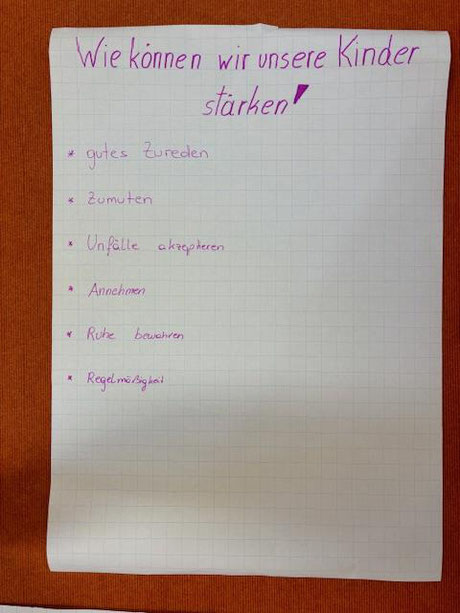 Wie können wir unsere Kinder
stärken!
* gutes Zureden
* Zumuten
* Unfälle akzeptieren
* Annehmen
* Ruhe bewahren
* Regelmäßigkeit